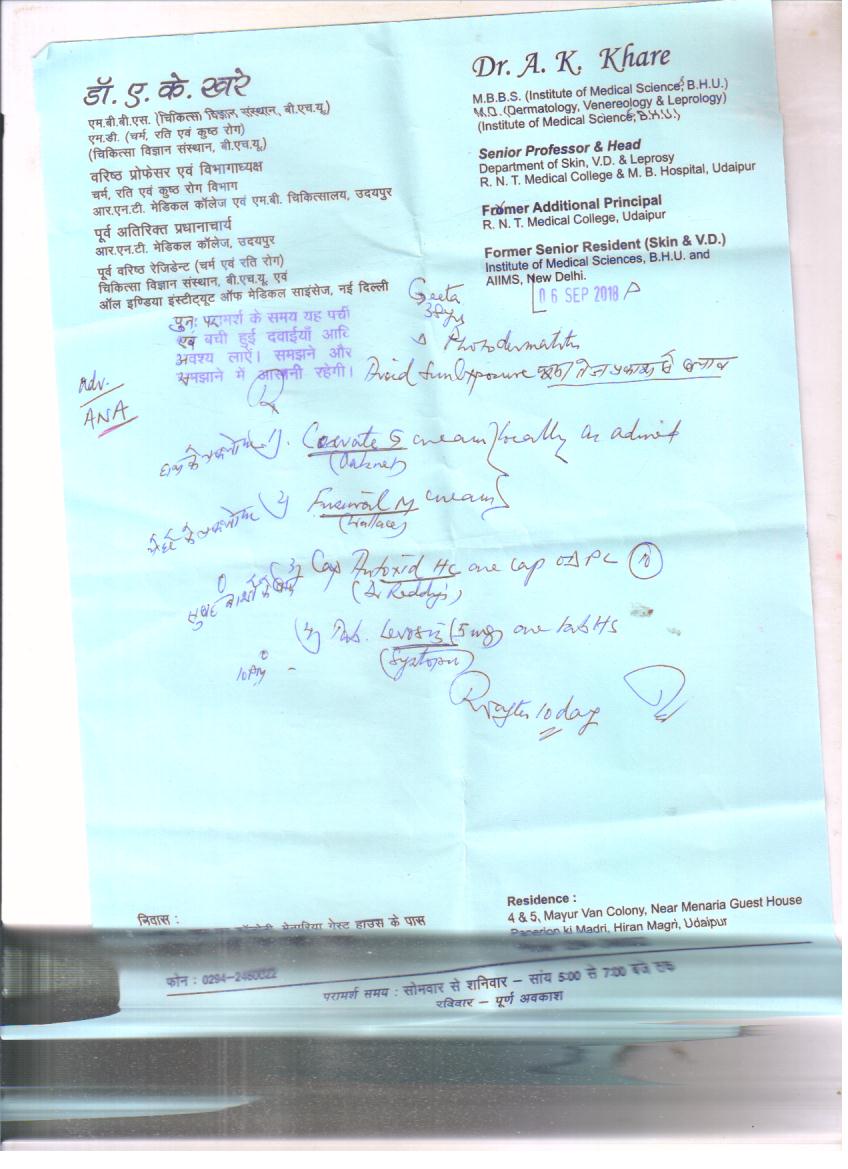 डॉ. ए. के. खरे
एम.बी.बी.एस. (चिकित्सा विज्ञान संस्थान, बी.एच.यू.)
एम.डी. (चर्म, रति एवं कुष्ठ रोग)
(चिकित्सा विज्ञान संस्थान, बी.एच.यू.)
वरिष्ठ प्रोफेसर एवं विभागाध्यक्ष
चर्म, रति एवं कुष्ठ रोग विभाग
आर.एन.टी. मेडिकल कॉलेज एवं एम.बी. चिकित्सालय, उदयपुर
पूर्व अतिरिक्त प्रधानाचार्य
आर.एन.टी. मेडिकल कॉलेज, उदयपुर
पूर्व वरिष्ठ रेजिडेन्ट (चर्म एवं रति रोग)
चिकित्सा विज्ञान संस्थान, बी.एच.यू. एवं
ऑल इण्डिया इंस्टीट्यूट ऑफ मेडिकल साइंसेज, नई दिल्ली
Dr. A. K. Khare
M.B.B.S. (Institute of Medical Science, B.H.U.)
M.D. (Dermatology, Venereology & Leprology)
(Institute of Medical Science, B.H.U.)
Senior Professor & Head
Department of Skin, V.D. & Leprosy
R. N. T. Medical College & M. B. Hospital, Udaipur
Former Additional Principal
R. N. T. Medical College, Udaipur
Former Senior Resident (Skin & V.D.)
Institute of Medical Sciences, B.H.U. and
AIIMS, New Delhi.
06 SEP 2018
पुनः परामर्श के समय यह पर्ची
एवं बची हुई दवाईयाँ आदि
अवश्य लाएँ। समझने और
समझाने में आसानी रहेगी।
Geeta
Photodermatitis
Avoid Sun Exposure
Adv.
ANA
1. cream locally as advised
2) cream
(Wallace)
3) Cap Antoxid HC one cap
(Dr Reddy's)
4) Tab. (5 mg) one tab HS
(Systopic)
R after 10 days
निवास :
मेनारिया गेस्ट हाउस के पास
Residence :
4 & 5, Mayur Van Colony, Near Menaria Guest House
Panerion ki Madri, Hiran Magri, Udaipur
फोन : 0294-2460022
परामर्श समय : सोमवार से शनिवार – सांय 5:00 से 7:00 बजे तक
रविवार – पूर्ण अवकाश